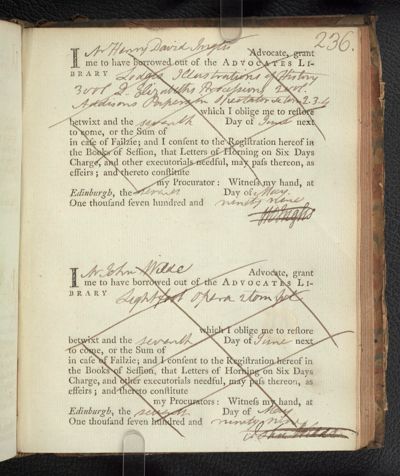 236.
I Mr Henry David Inglis Advocate, grant
me to have borrowed out of the ADVOCATES LI-
BRARY Lodges Illustrations of History
3 vol D. Elizabeths Progresses 2 vol.
Addisons Spectator 2.3.4
which I oblige me to reſtore
betwixt and the seventh Day of June next
to come, or the Sum of
in caſe of Failzie; and I conſent to the Regiſtration hereof in
the Books of Seſſion, that Letters of Horning on Six Days
Charge, and other executorials needful, may paſs thereon, as
effeirs; and thereto conſtitute
my Procurator: Witneſs my hand, at
Edinburgh, the Day of May
One thouſand ſeven hundred and ninety nine
HD Inglis
I Mr John Wilde Advocate, grant
me to have borrowed out of the ADVOCATES LI-
BRARY Lightfoot opera
which I oblige me to reſtore
betwixt and the seventh Day of June next
to come, or the Sum of
in caſe of Failzie; and I conſent to the Regiſtration hereof in
the Books of Seſſion, that Letters of Horning on Six Days
Charge, and other executorials needful, may paſs thereon, as
effeirs; and thereto conſtitute
my Procurators: Witneſs my hand, at
Edinburgh, the seventh Day of May
One thouſand ſeven hundred and ninety nine
John Wilde